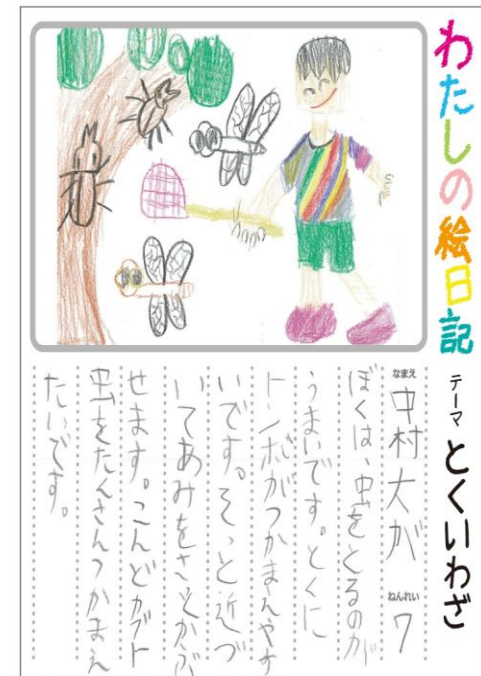 わたしの絵日記
テーマ とくいわざ
なまえ 中村大が ねんれい 7
ぼくは、虫をとるのが
うまいです。とくに
トンボがつかまえやす
いです。そっと近づ
いてあみをさっとかぶ
せます。こんどカブト
虫をたくさんつかまえ
たいです。